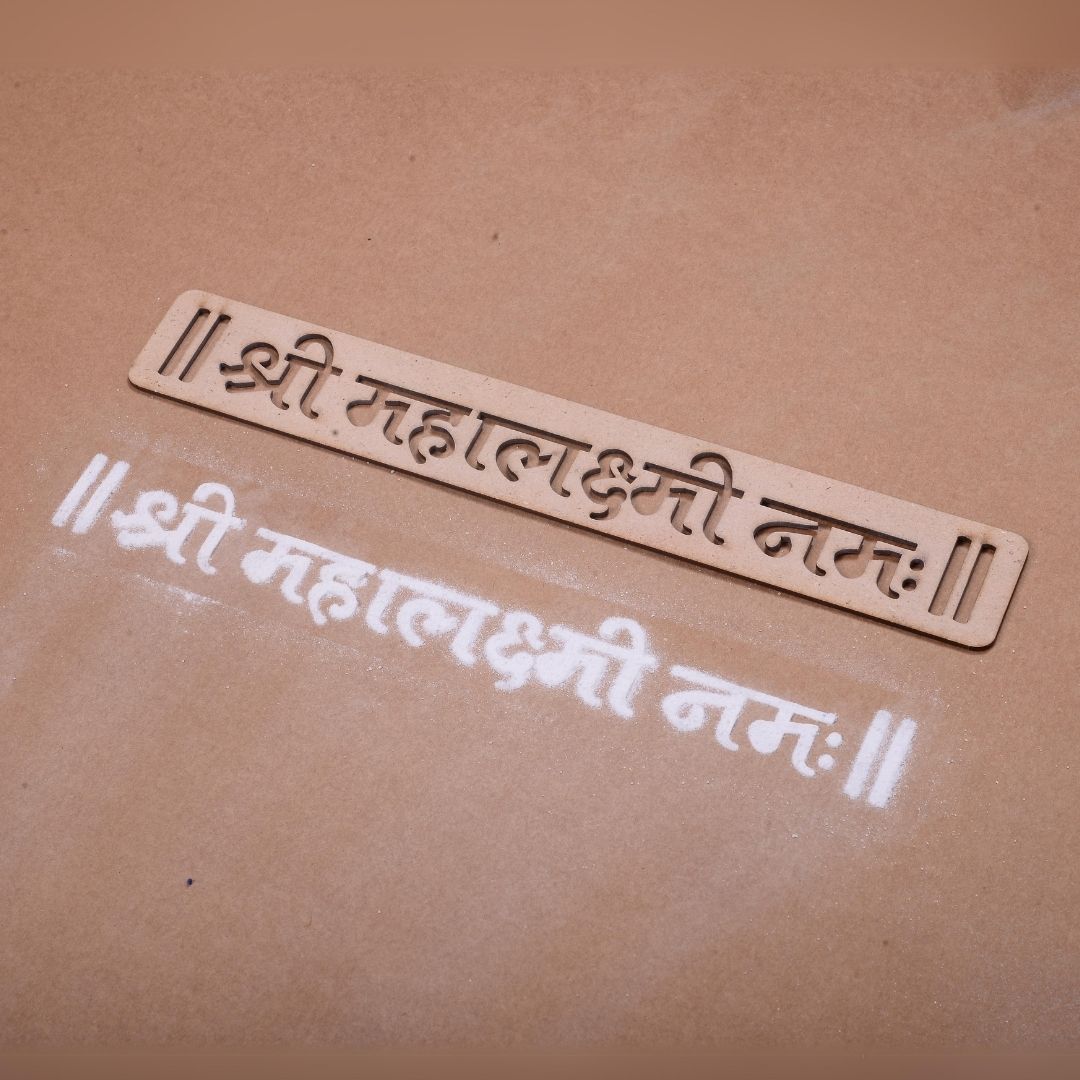 || श्री महालक्ष्मी नमः ||
|| श्री महालक्ष्मी नमः ||